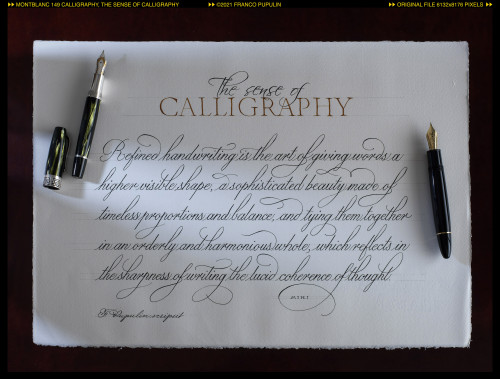 MONTBLANC 149 CALLIGRAPHY, THE SENSE OF CALLIGRAPHY
©2021 FRANCO PUPULIN
ORIGINAL FILE 8132x8176 PIXELS
The sense of
CALLIGRAPHY
Refined handwriting is the art of giving words a
higher visible shape, a sophisticated beauty made of
timeless proportions and balance, and tying them together
in an orderly and harmonious whole, which reflects in
the sharpness of writing the lucid coherence of thought
F. Pupulin scripsit